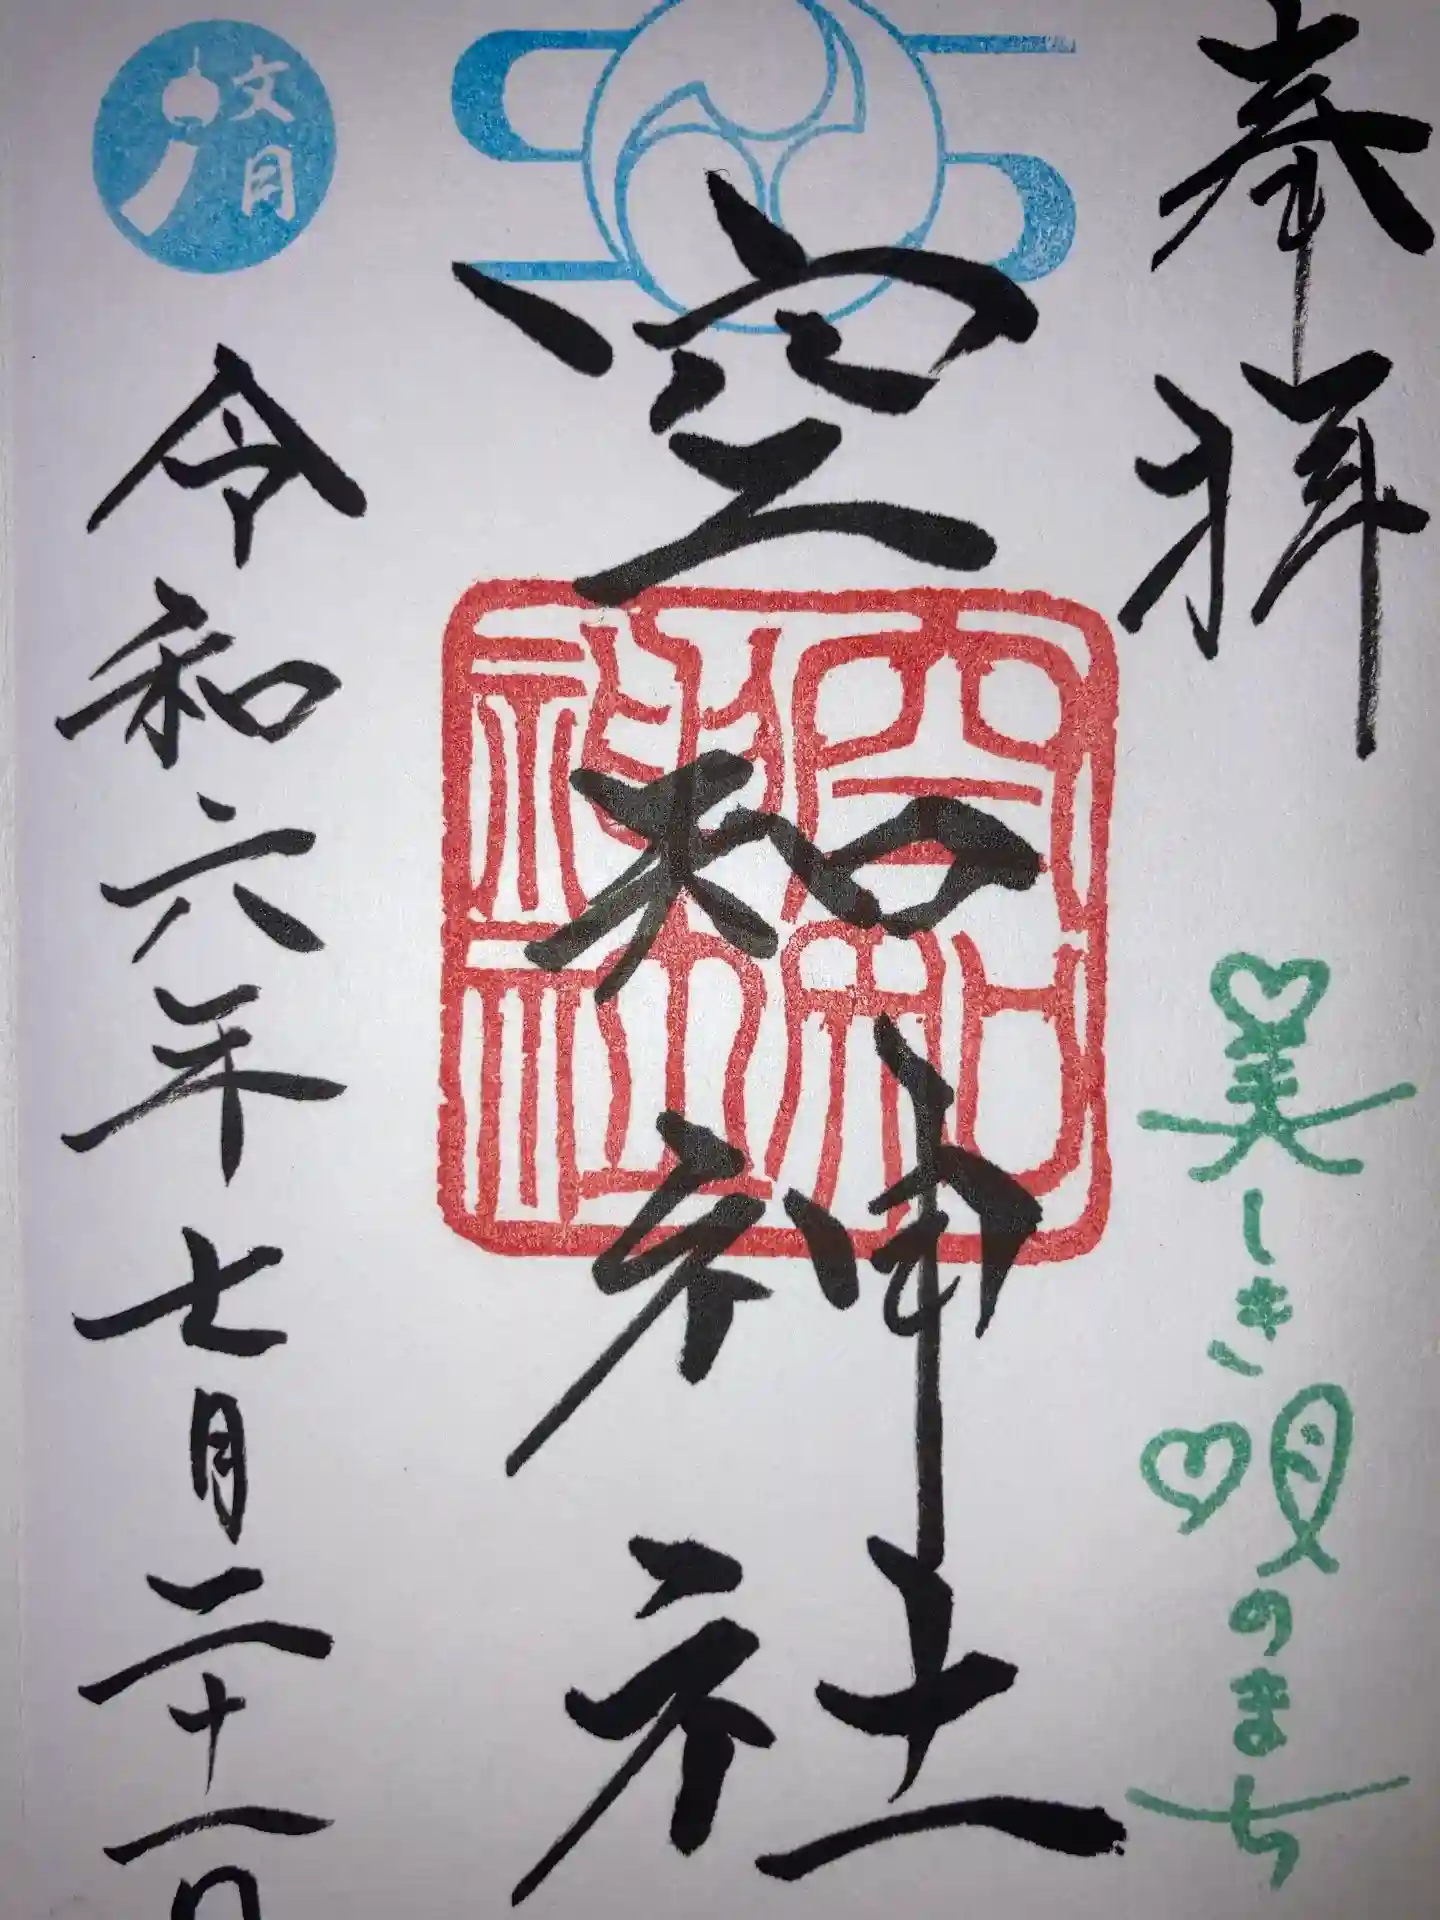 奉拝
美しき唄のまち
空知神社
空知
神社
文月
令和六年七月二十一日